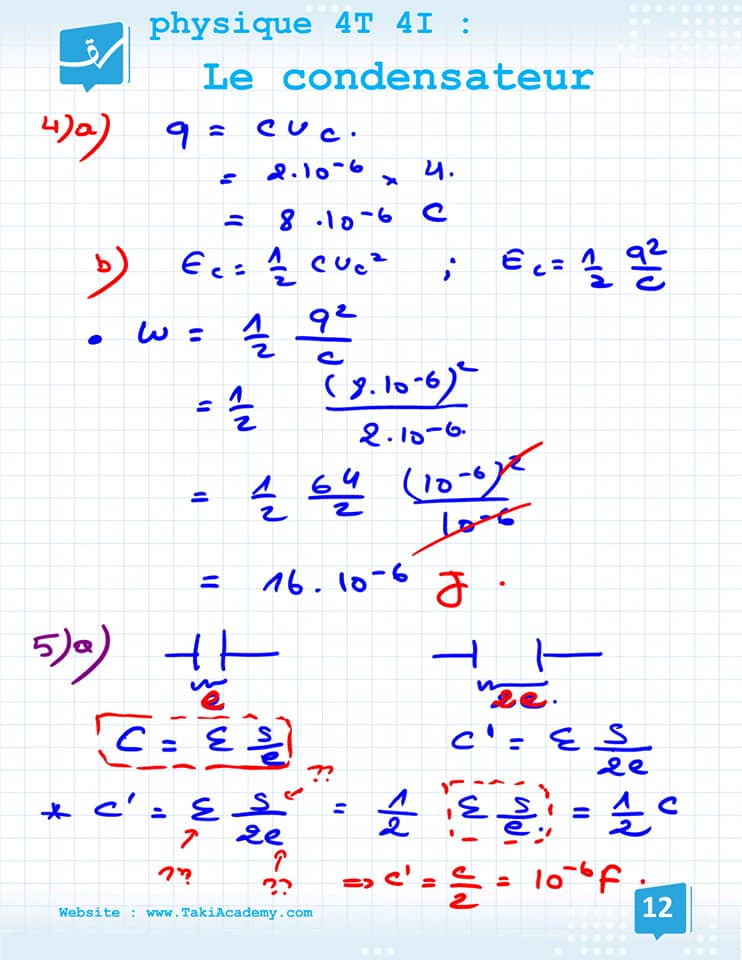 physique 4T 4I :
Le condensateur
4)a) q = C Uc.
= 2.10-6 x 4.
= 8 .10-6 C
b) Ec = 1/2 C Uc² ; Ec = 1/2 q²/C
• W = 1/2 q²/C
= 1/2 (8.10-6)²/2.10-6.
= 1/2 64/2 (10-6)²/10-6
= 16.10-6 J .
5)a)
e 2e.
C = ε s/e C' = ε S/2e
??
* C' = ε s/2e = 1/2 ε s/e. = 1/2 C
?? ?? => C' = C/2 = 10-6 F .
Website : www.TakiAcademy.com
12